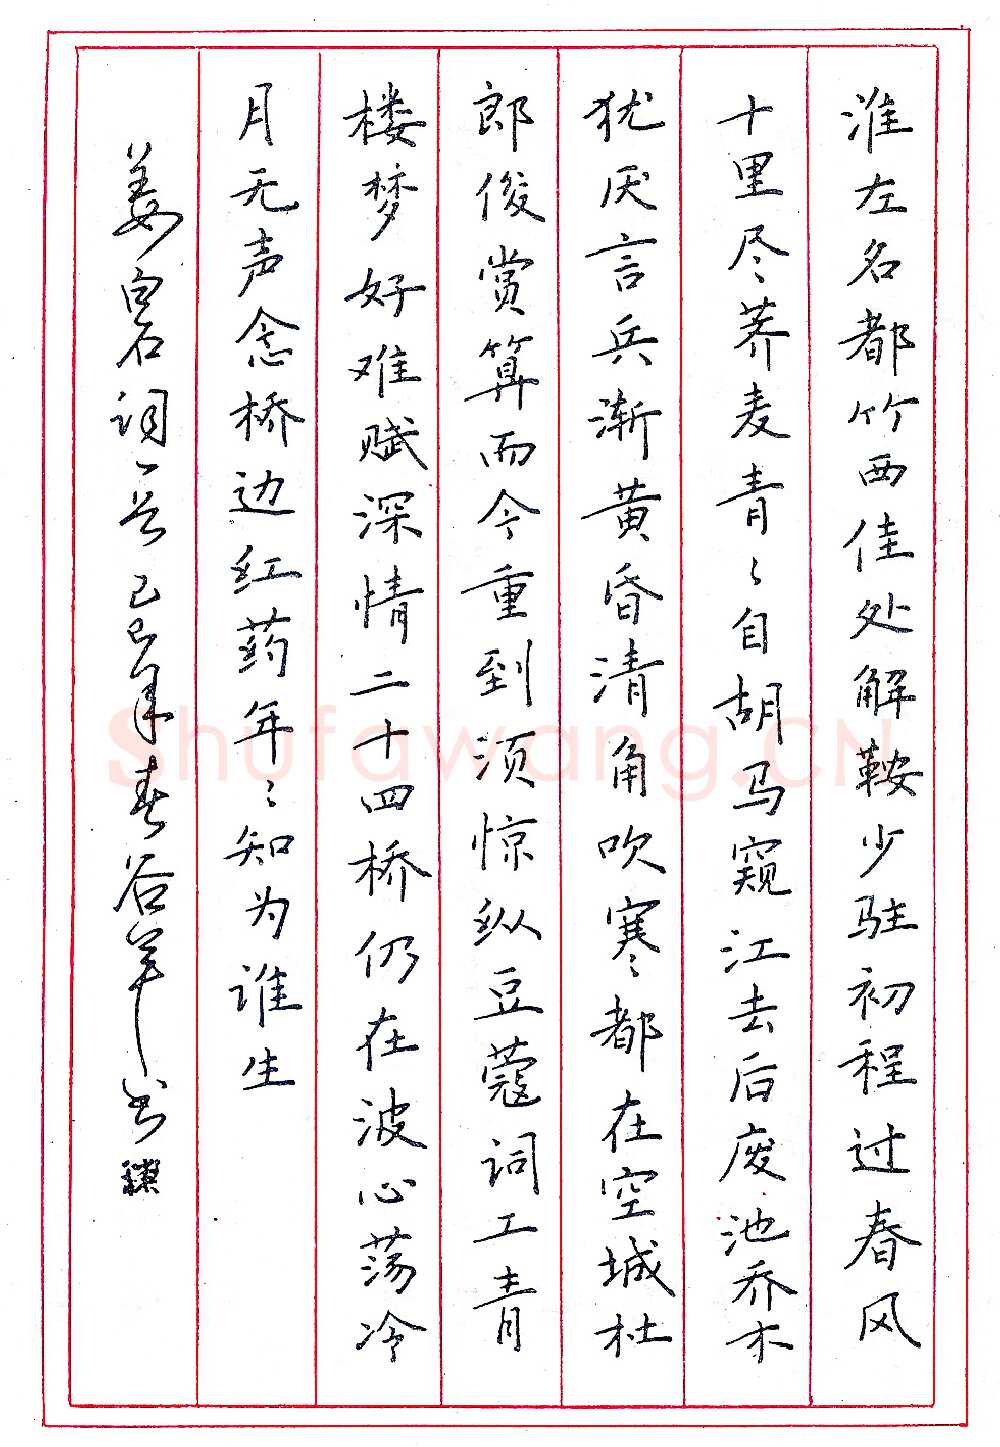 淮左名都竹西佳处解鞍少驻初程过春风
十里尽荠麦青〻自胡马窥江去后废池乔木
犹厌言兵渐黄昏清角吹寒都在空城杜
郎俊赏算而今重到须惊纵豆蔻词工青
楼梦好难赋深情二十四桥仍在波心荡冷
月无声念桥边红药年〻知为谁生
姜白石词一首己巳年春谷羊书
Shufawang.CN